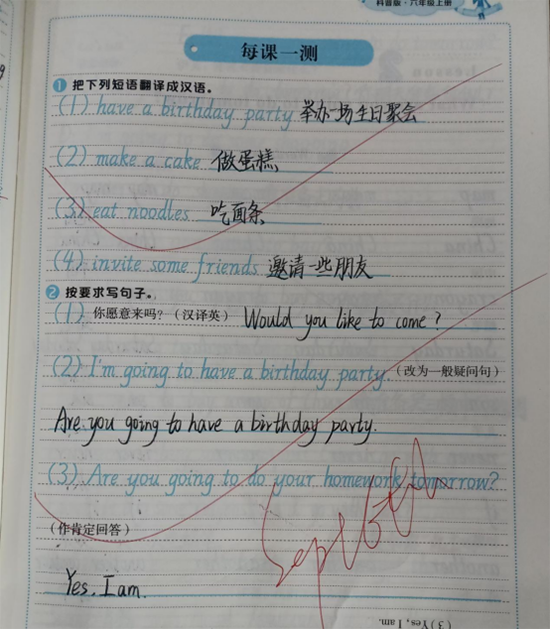 科普版·六年级上册
每课一测
1 把下列短语翻译成汉语。
(1) have a birthday party 举办一场生日聚会
(2) make a cake 做蛋糕
(3) eat noodles 吃面条
(4) invite some friends 邀请一些朋友
2 按要求写句子。
(1) 你愿意来吗?(汉译英) Would you like to come?
(2) I'm going to have a birthday party. (改为一般疑问句)
Are you going to have a birthday party.
(3) Are you going to do your homework tomorrow?
(作肯定回答)
Sept 6th
Yes, I am.
(3) Yes, I am.